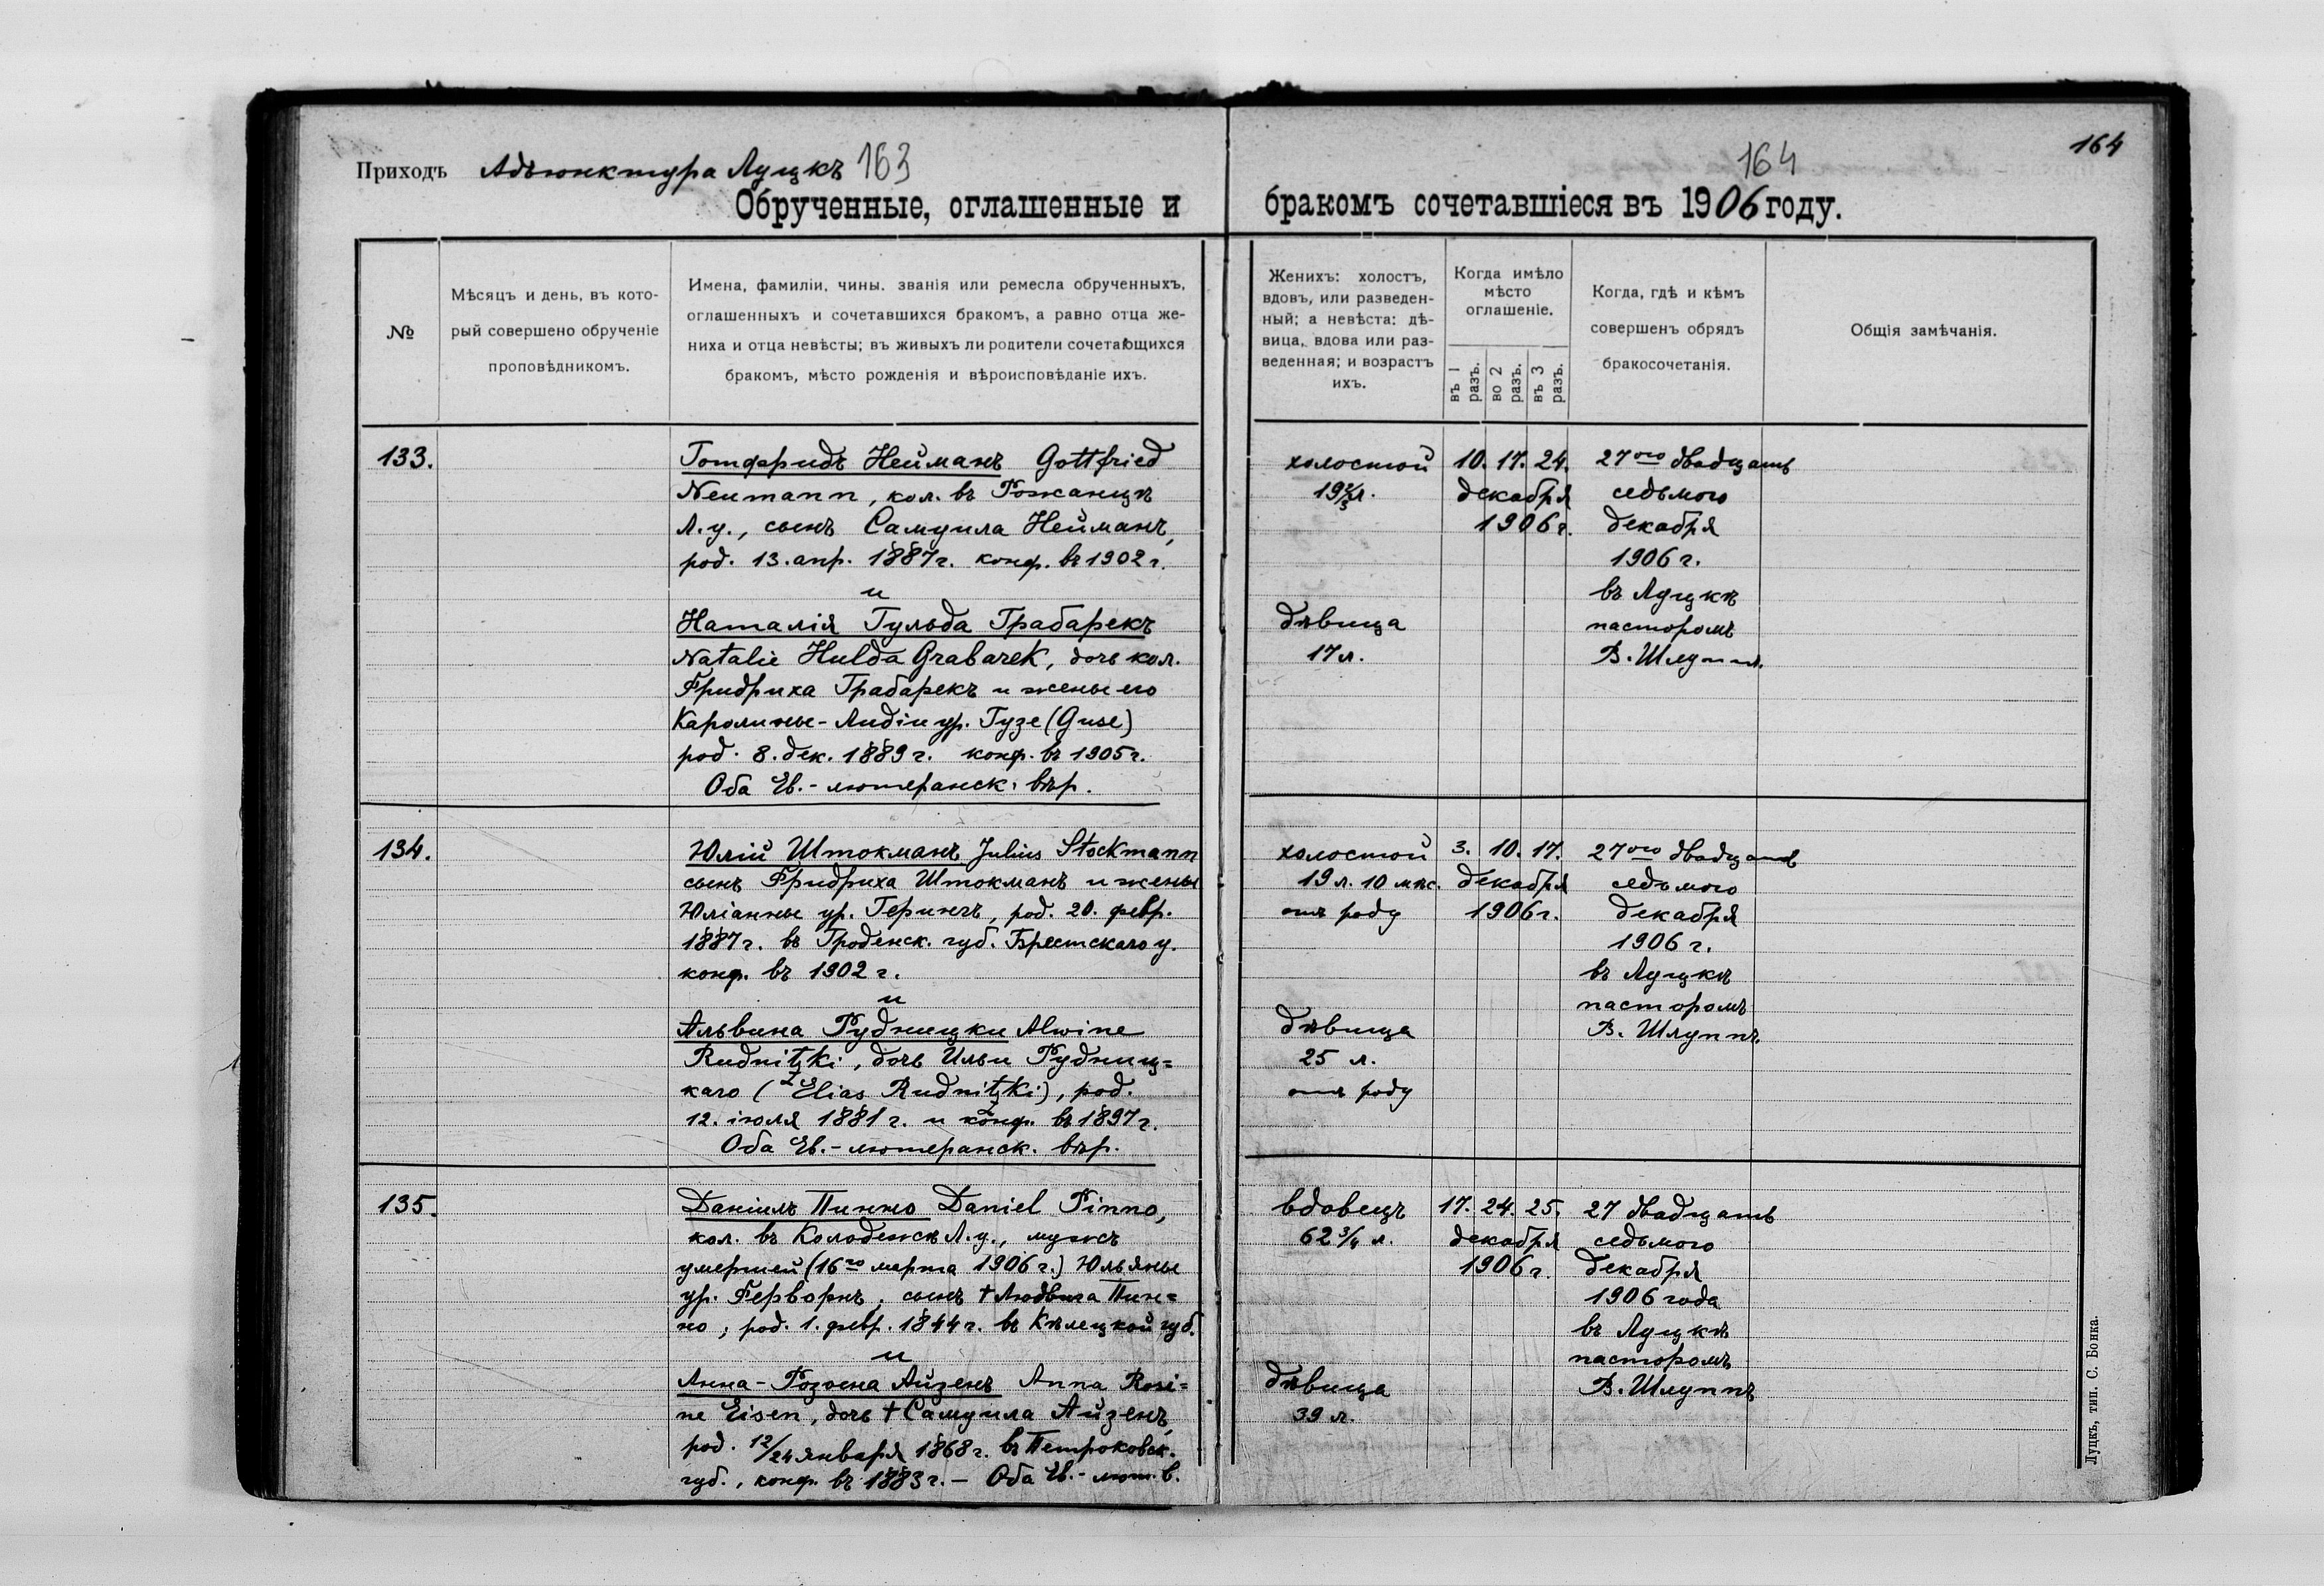 Приходъ Адъюнктура Луцкъ 163
164
164
Обрученные, оглашенные и бракомъ сочетавшіеся въ 1906 году.
№
Мѣсяцъ и день, въ кото-
рый совершено обрученіе
проповѣдникомъ.
Имена, фамиліи, чины, званія или ремесла обрученныхъ,
оглашенныхъ и сочетавшихся бракомъ, а равно отца же-
ниха и отца невѣсты; въ живыхъ ли родители сочетающихся
бракомъ, мѣсто рожденія и вѣроисповѣданіе ихъ.
Женихъ: холостъ,
вдовъ, или разведен-
ный; а невѣста: дѣ-
вица, вдова или раз-
веденная; и возрастъ
ихъ.
Когда имѣло
мѣсто
оглашеніе.
въ 1
разъ.
во 2
разъ.
въ 3
разъ.
Когда, гдѣ и кѣмъ
совершенъ обрядъ
бракосочетанія.
Общія замѣчанія.
133.
Готфридъ Нейманъ Gottfried
Neumann, кол. въ Рожанцѣ
Л.у., сынъ Самуила Нейманъ,
род. 13. апр. 1887 г. конф. въ 1902 г.
и
Наталія Гульда Грабарекъ
Natalie Hulda Grabarek, дочь кол.
Фридриха Грабарекъ и жены его
Каролины-Лидіи ур. Гузе (Guse)
род. 8. дек. 1889 г. конф. въ 1905 г.
Оба Ев.-лютеранск. вѣр.
холостой
19⅔ л.
дѣвица
17 л.
10. 17. 24.
декабря
1906 г.
27ого двадцать
седьмого
декабря
1906 г.
въ Луцкѣ
пасторомъ
В. Шлуппъ
134.
Юлій Штокманъ Julius Stockmann
сынъ Фридриха Штокманъ и жены
Юліанны ур. Герингъ, род. 20. февр.
1887 г. въ Гроденск. губ. Брестскаго у.
конф. въ 1902 г.
и
Альвина Рудницки Alwine
Rudnitzki, дочь Ильи Рудниц=
каго (Elias Rudnitzki), род.
12. іюля 1881 г. и конф. въ 1897 г.
Оба Ев.-лютеранск. вѣр.
холостой
19 л. 10 мѣс.
отъ роду
дѣвица
25 л.
отъ роду
3. 10. 17.
декабря
1906 г.
27ого двадцать
седьмого
декабря
1906 г.
въ Луцкѣ
пасторомъ
В. Шлуппъ
135.
Даніилъ Пинно Daniel Pinno,
кол. въ Колодежѣ Л.у., мужъ
умершей (16го марта 1906 г.) Юльяны
ур. Ферворнъ, сынъ † Людвига Пин=
но; род. 1. февр. 1844 г. въ Кѣлецкой губ.
и
Анна-Розина Айзенъ Anna Rosi=
ne Eisen, дочь † Самуила Айзенъ,
род. 12/24 января 1868 г. въ Петроковск.
губ., конф. въ 1883 г. — Оба Ев.-лют. в.
вдовецъ
62 3/4 л.
дѣвица
39 л.
17. 24. 25.
декабря
1906 г.
27 двадцать
седьмого
декабря
1906 года
въ Луцкѣ
пасторомъ
В. Шлуппъ
Луцкъ, тип. С. Бонка.